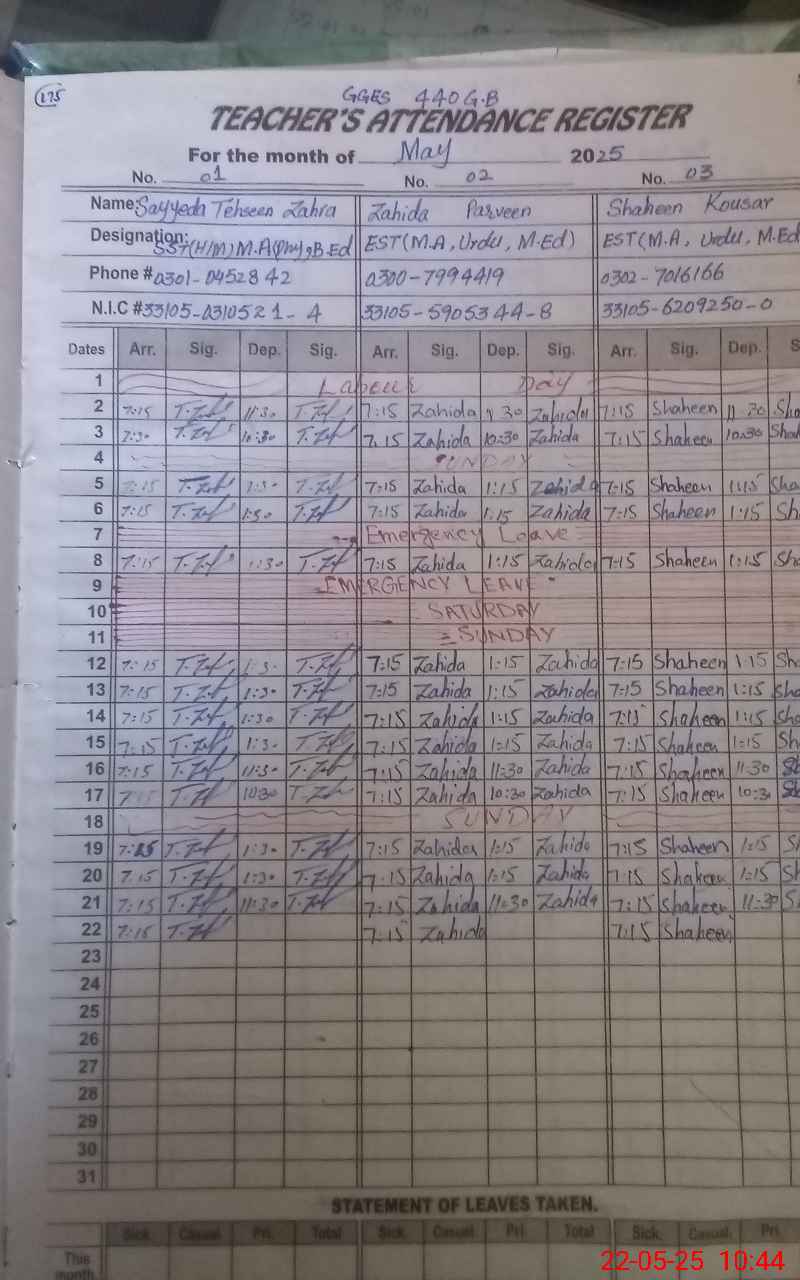 175
GGES 440 G.B
TEACHER'S ATTENDANCE REGISTER
For the month of May 2025
No. 01 No. 02 No. 03
Name: Sayyeda Tehseen Zahra Zahida Parveen Shaheen Kousar
Designation: SST(H/M) M.A(Phy), B.Ed EST(M.A, Urdu, M.Ed) EST(M.A, Urdu, M.Ed
Phone # 0301-0452842 0300-7994419 0302-7016166
N.I.C # 33105-0310521-4 33105-5905344-8 33105-6209250-0
Dates Arr. Sig. Dep. Sig. Arr. Sig. Dep. Sig. Arr. Sig. Dep. S
1 Labour Day
2 7:15 T.Zeh 11:30 T.Zeh 7:15 Zahida 11 30 Zahida 7:15 Shaheen 11 30 Sha
3 7:30 T.Zeh 10:30 T.Zeh 7:15 Zahida 10:30 Zahida 7:15 Shaheen 10:30 Shah
4 SUNDAY
5 7:15 T.Zeh 1:30 T.Zeh 7:15 Zahida 1:15 Zahida 7:15 Shaheen 1:15 Sha
6 7:15 T.Zeh 1:30 T.Zeh 7:15 Zahida 1:15 Zahida 7:15 Shaheen 1:15 Sh
7 Emergency Leave
8 7:15 T.Zeh 1:30 T.Zeh 7:15 Zahida 1:15 Zahida 7:15 Shaheen 1:15 Sha
9 EMERGENCY LEAVE
10 SATURDAY
11 SUNDAY
12 7:15 T.Zeh 1:3 T.Zeh 7:15 Zahida 1:15 Zahida 7:15 Shaheen 1:15 Sha
13 7:15 T.Zeh 1:30 T.Zeh 7:15 Zahida 1:15 Zahida 7:15 Shaheen 1:15 Sha
14 7:15 T.Zeh 1:30 T.Zeh 7:15 Zahida 1:15 Zahida 7:15 Shaheen 1:15 Sha
15 7:15 T.Zeh 1:30 T.Zeh 7:15 Zahida 1:15 Zahida 7:15 Shaheen 1:15 Sh
16 7:15 T.Zeh 11:30 T.Zeh 7:15 Zahida 11:30 Zahida 7:15 Shaheen 11:30 Sh
17 7:15 T.Zeh 10:30 T.Zeh 7:15 Zahida 10:30 Zahida 7:15 Shaheen 10:30 Sh
18 SUNDAY
19 7:15 T.Zeh 1:30 T.Zeh 7:15 Zahida 1:15 Zahida 7:15 Shaheen 1:15 Sh
20 7:15 T.Zeh 1:30 T.Zeh 7:15 Zahida 1:15 Zahida 7:15 Shaheen 1:15 Sh
21 7:15 T.Zeh 11:30 T.Zeh 7:15 Zahida 11:30 Zahida 7:15 Shaheen 11:30 S
22 7:15 T.Zeh 7:15 Zahida 7:15 Shaheen
23
24
25
26
27
28
29
30
31
STATEMENT OF LEAVES TAKEN.
Sick. Casual. Pri. Total Sick. Casual. Pri. Total Sick. Casual. Pri.
This
month
22-05-25 10:44